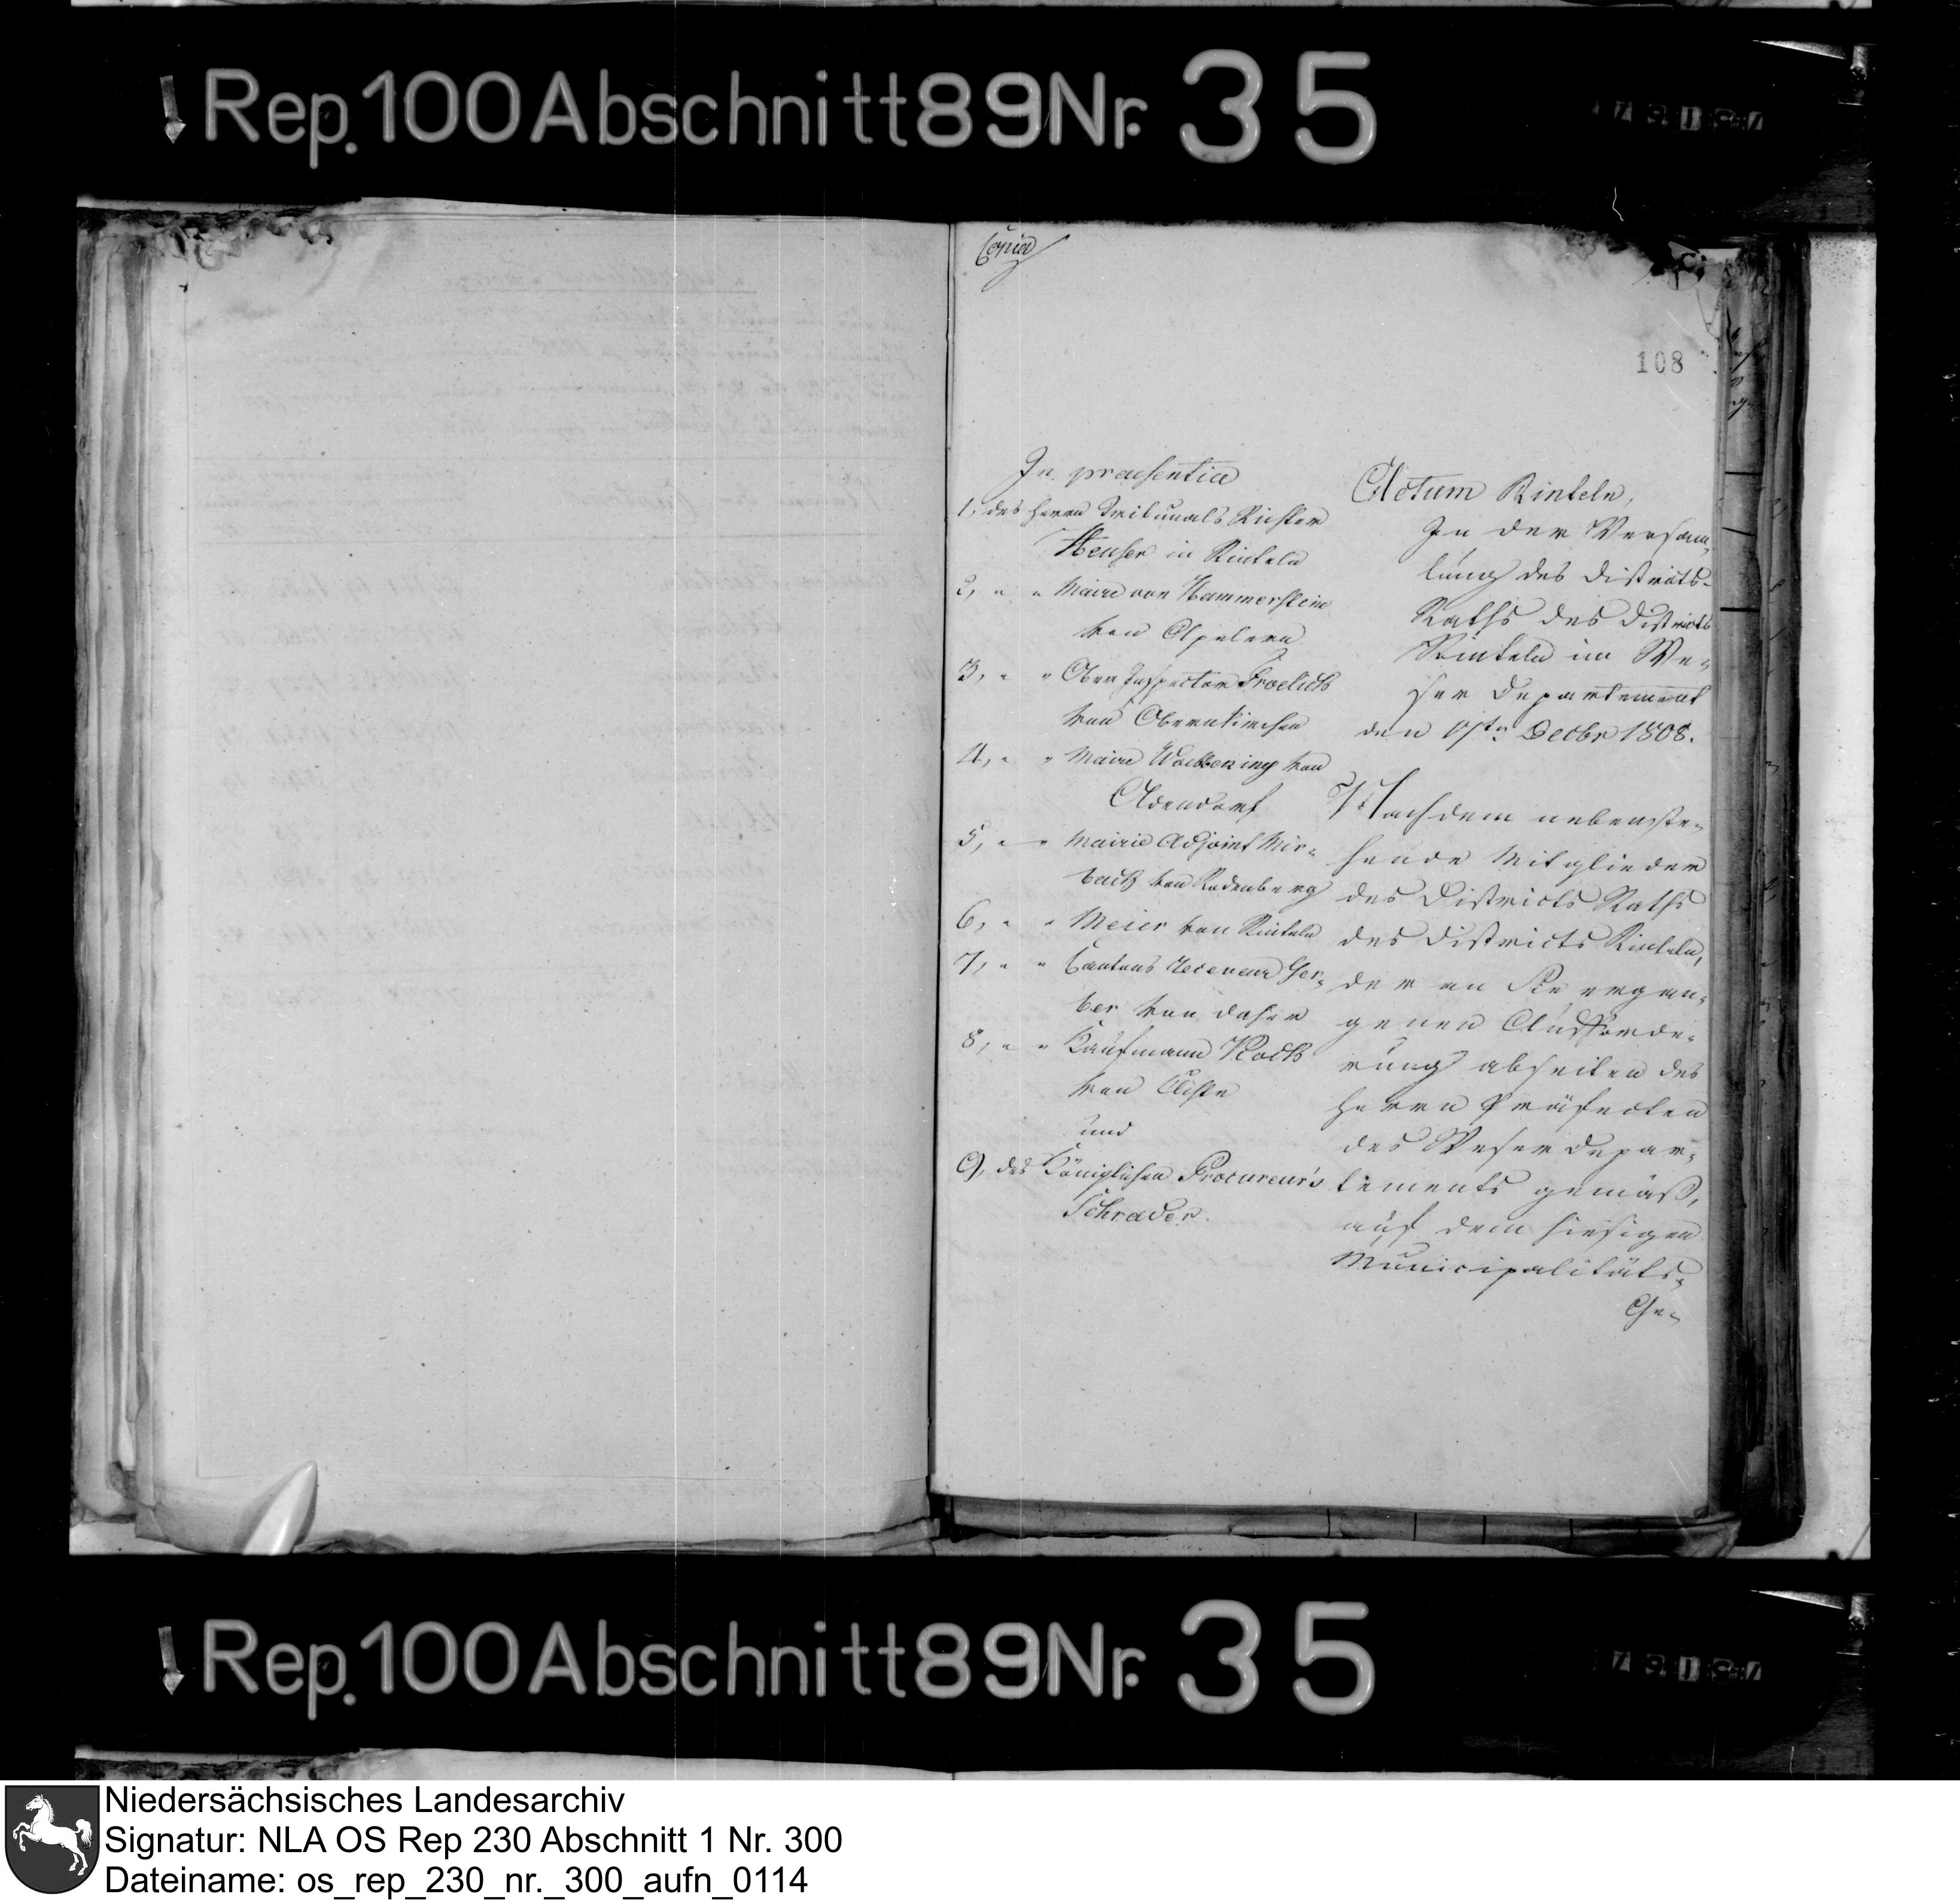 Rep. 100 Abschnitt 89 Nr. 35
Copia
108
In praesentia
1, des Herrn Tribunals Richter
Heuser in Rinteln
2, " " Maire von Hammerstein
von Apelern
3, " " Ober Inspector Froelich
von Obernkirchen
4, " " Maire Woebbeking von
Oldendorf
5, " " Mairie Adjoint Mir-
bach von Rodenberg
6, " " Meier von Rinteln
7, " " Cantons Receveur Ger-
ber von daher
8, " " Kaufmann Koch
von
und
9, des Königlichen Procureur's
Schrader.
Actum Rinteln,
In der Versam-
lung des Districts-
Raths des Districts
Rinteln im We-
ser Departement
den Decbr 1808.
Nachdem nebenste-
hende Mitglieder
des Districts Raths
des Districts Rinteln,
der an Sie ergan-
genen Aufforde-
rung abseiten des
Herrn Präfecten
des Weser Depar-
tements gemäß,
auf dem hiesigen
Municipalitäts-
Ge-
Rep. 100 Abschnitt 89 Nr. 35
Niedersächsisches Landesarchiv
Signatur: NLA OS Rep 230 Abschnitt 1 Nr. 300
Dateiname: os_rep_230_nr._300_aufn_0114